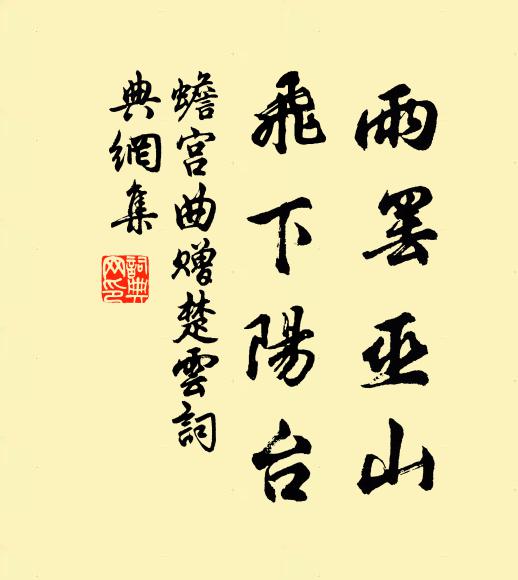 雨罢巫山
飛下陽台
蟾宮曲贈楚雲詞
典網集
詞典網印